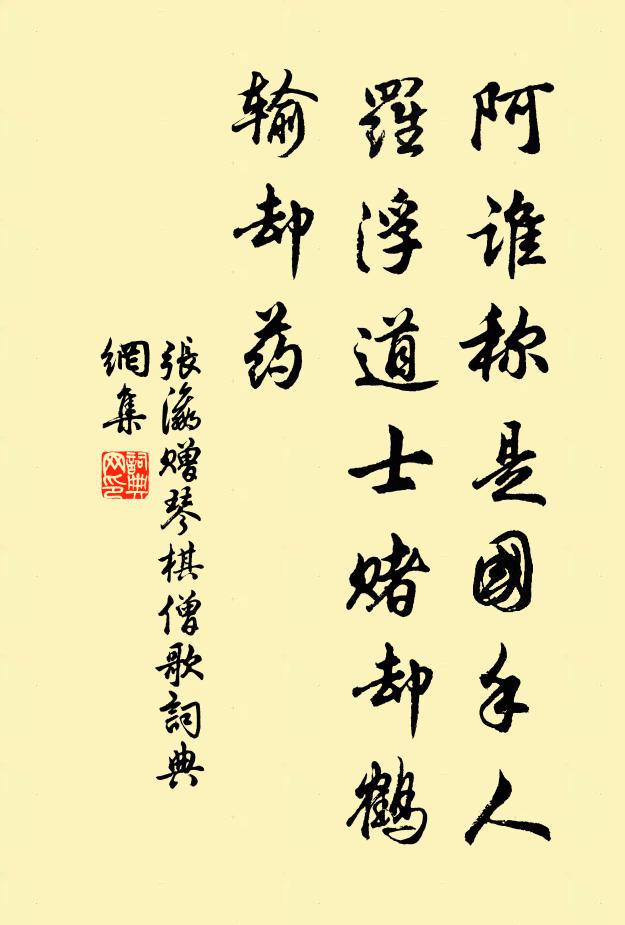 阿谁称是國手人
羅浮道士赌却鶴
输却药
張瀛赠琴棋僧歌詞典
網集
詞典
网印